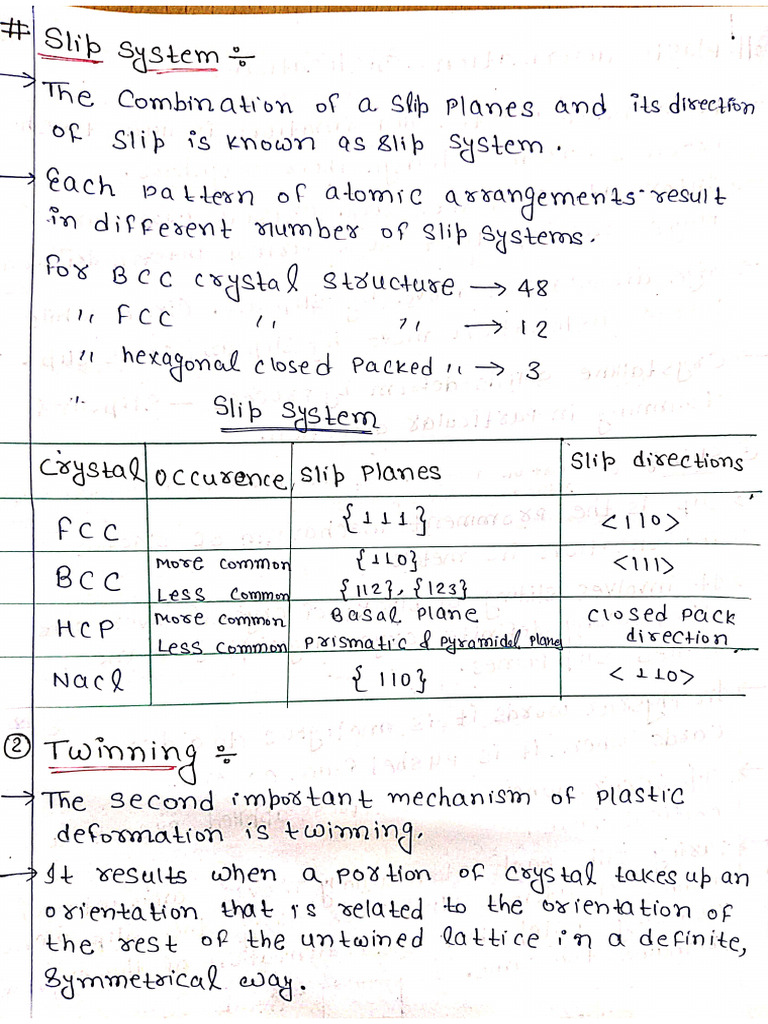 # Slip System ÷
→ The combination of a slip planes and its direction
of slip is known as slip system.
→ Each pattern of atomic arrangements result
in different number of slip systems.
for BCC crystal structure → 48
" FCC " " → 12
" hexagonal closed packed " → 3
"
Slip System
Crystal Occurence Slip Planes Slip directions
FCC {111} <110>
BCC More common {110} <111>
Less common {112}, {123}
HCP More common Basal Plane closed pack
Less common Prismatic & Pyramidal Plane direction
Nacl {110} <110>
② Twinning ÷
→ The second important mechanism of plastic
deformation is twinning.
→ It results when a portion of crystal takes up an
orientation that is related to the orientation of
the rest of the untwined lattice in a definite,
symmetrical way.